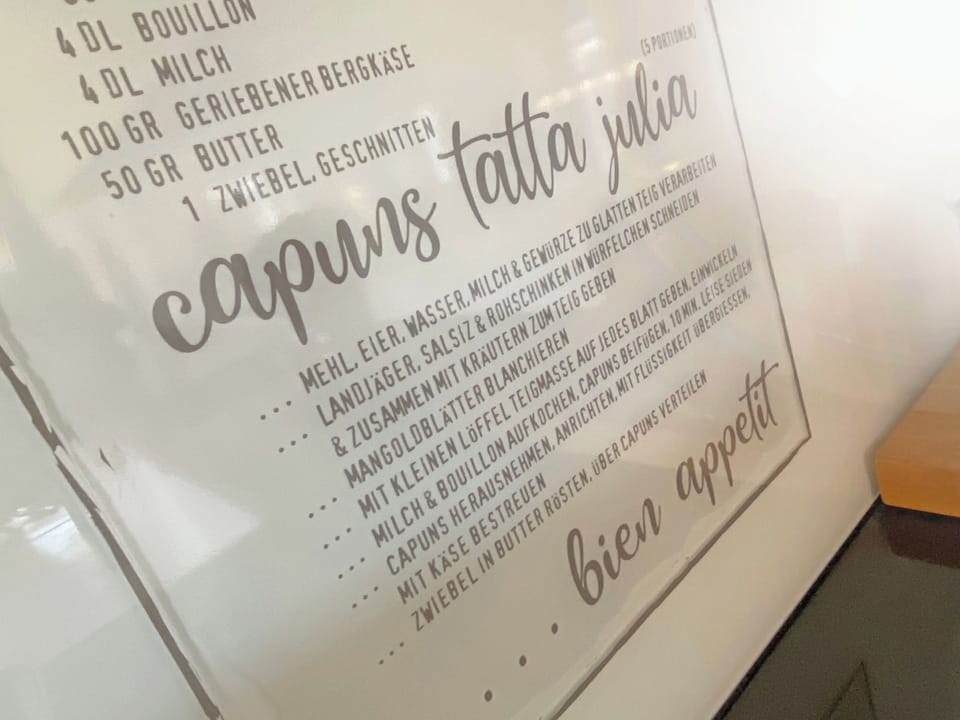 4 DL BOUILLON
4 DL MILCH
100 GR GERIEBENER BERGKÄSE
50 GR BUTTER
1 ZWIEBEL, GESCHNITTEN
(5 PORTIONEN)
capuns tatta julia
... MEHL, EIER, WASSER, MILCH & GEWÜRZE ZU GLATTEN TEIG VERARBEITEN
... LANDJÄGER, SALSIZ & ROHSCHINKEN IN WÜRFELCHEN SCHNEIDEN
& ZUSAMMEN MIT KRÄUTERN ZUM TEIG GEBEN
... MANGOLDBLÄTTER BLANCHIEREN
... MIT KLEINEN LÖFFEL TEIGMASSE AUF JEDES BLATT GEBEN, EINWICKELN
... MILCH & BOUILLON AUFKOCHEN, CAPUNS BEIFÜGEN, 10 MIN. LEISE SIEDEN
... CAPUNS HERAUSNEHMEN, ANRICHTEN, MIT FLÜSSIGKEIT ÜBERGIESSEN,
MIT KÄSE BESTREUEN
... ZWIEBEL IN BUTTER RÖSTEN, ÜBER CAPUNS VERTEILEN
... bien appetit